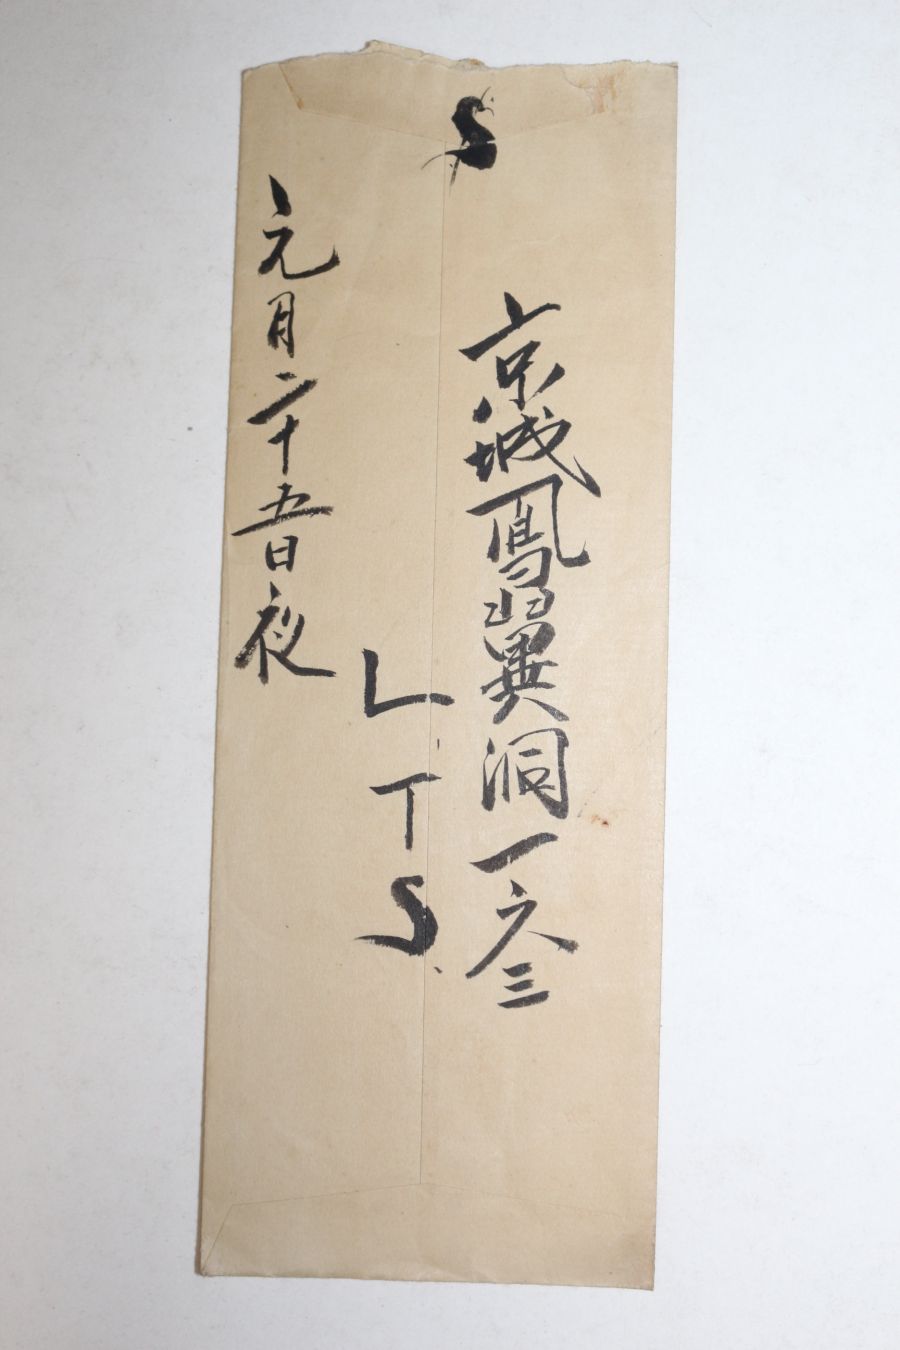 S
京城鳳翼洞一六三
L T S.
元月二十五日夜